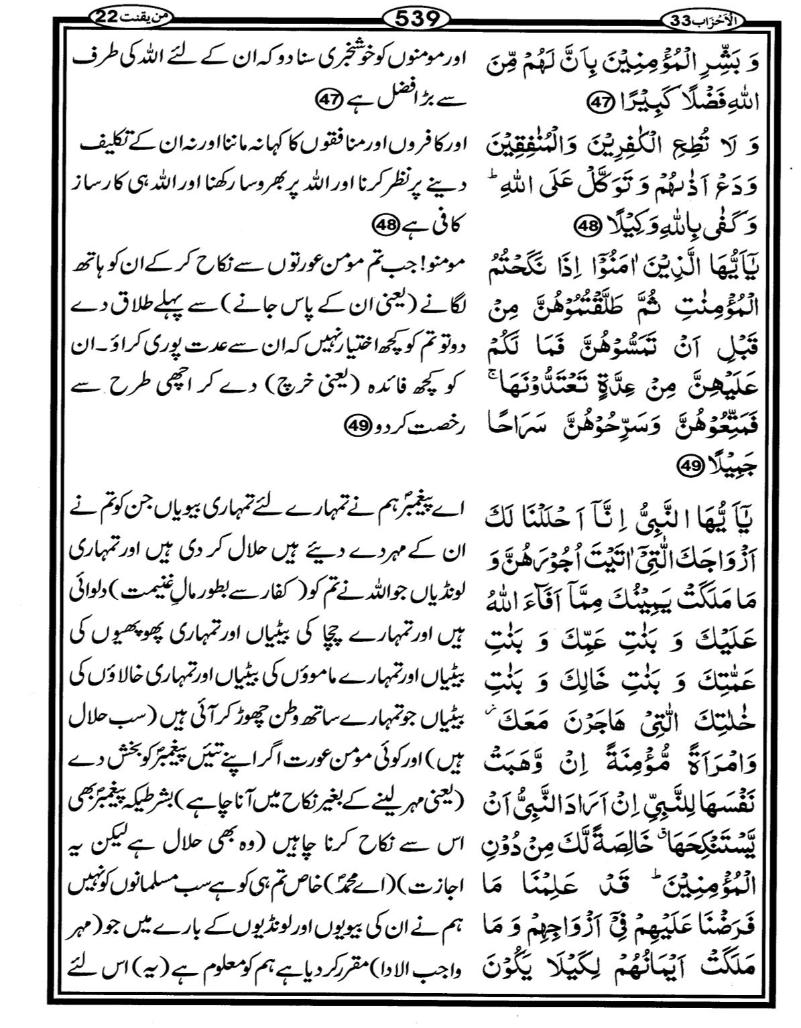 الاحزاب 33
539
من یقنت 22
وَ بَشِّرِ الْمُؤْمِنِیْنَ بِاَنَّ لَهُمْ مِّنَ
اللّٰهِ فَضْلًا كَبِیْرًا 47
وَ لَا تُطِعِ الْكٰفِرِیْنَ وَالْمُنٰفِقِیْنَ
وَدَعْ اَذٰىهُمْ وَ تَوَكَّلْ عَلَی اللّٰهِ ؕ
وَ كَفٰی بِاللّٰهِ وَكِیْلًا 48
یٰۤاَیُّهَا الَّذِیْنَ اٰمَنُوْۤا اِذَا نَكَحْتُمُ
الْمُؤْمِنٰتِ ثُمَّ طَلَّقْتُمُوْهُنَّ مِنْ
قَبْلِ اَنْ تَمَسُّوْهُنَّ فَمَا لَكُمْ
عَلَیْهِنَّ مِنْ عِدَّةٍ تَعْتَدُّوْنَهَا ۚ
فَمَتِّعُوْهُنَّ وَسَرِّحُوْهُنَّ سَرَاحًا
جَمِیْلًا 49
یٰۤاَیُّهَا النَّبِیُّ اِنَّاۤ اَحْلَلْنَا لَكَ
اَزْوَاجَكَ الّٰتِیْۤ اٰتَیْتَ اُجُوْرَهُنَّ وَ
مَا مَلَكَتْ یَمِیْنُكَ مِمَّاۤ اَفَآءَ اللّٰهُ
عَلَیْكَ وَ بَنٰتِ عَمِّكَ وَ بَنٰتِ
عَمّٰتِكَ وَ بَنٰتِ خَالِكَ وَ بَنٰتِ
خٰلٰتِكَ الّٰتِیْ هَاجَرْنَ مَعَكَ ؗ
وَامْرَاَةً مُّؤْمِنَةً اِنْ وَّهَبَتْ
نَفْسَهَا لِلنَّبِیِّ اِنْ اَرَادَ النَّبِیُّ اَنْ
یَّسْتَنْكِحَهَا ۗ خَالِصَةً لَّكَ مِنْ دُوْنِ
الْمُؤْمِنِیْنَ ؕ قَدْ عَلِمْنَا مَا
فَرَضْنَا عَلَیْهِمْ فِیْۤ اَزْوَاجِهِمْ وَ مَا
مَلَكَتْ اَیْمَانُهُمْ لِكَیْلَا یَكُوْنَ
اور مومنوں کو خوشخبری سنا دو کہ ان کے لئے اللہ کی طرف
سے بڑا فضل ہے 47
اور کافروں اور منافقوں کا کہا نہ ماننا اور نہ ان کے تکلیف
دینے پر نظر کرنا اور اللہ پر بھروسا رکھنا اور اللہ ہی کارساز
کافی ہے 48
مومنو! جب تم مومن عورتوں سے نکاح کر کے ان کو ہاتھ
لگانے (یعنی ان کے پاس جانے) سے پہلے طلاق دے
دو تو تم کو کچھ اختیار نہیں کہ ان سے عدت پوری کراؤ۔ ان
کو کچھ فائدہ (یعنی خرچ) دے کر اچھی طرح سے
رخصت کر دو 49
اے پیغمبرؐ ہم نے تمہارے لئے تمہاری بیویاں جن کو تم نے
ان کے مہر دے دیئے ہیں حلال کر دی ہیں اور تمہاری
لونڈیاں جو اللہ نے تم کو (کفار سے بطور مالِ غنیمت) دلوائی
ہیں اور تمہارے چچا کی بیٹیاں اور تمہاری پھوپھیوں کی
بیٹیاں اور تمہارے ماموؤں کی بیٹیاں اور تمہاری خالاؤں کی
بیٹیاں جو تمہارے ساتھ وطن چھوڑ کر آئی ہیں (سب حلال
ہیں) اور کوئی مومن عورت اگر اپنے تئیں پیغمبرؐ کو بخش دے
(یعنی مہر لینے کے بغیر نکاح میں آنا چاہے) بشرطیکہ پیغمبرؐ بھی
اس سے نکاح کرنا چاہیں (وہ بھی حلال ہے لیکن یہ
اجازت) (اے محمدؐ) خاص تم ہی کو ہے سب مسلمانوں کو نہیں
ہم نے ان کی بیویوں اور لونڈیوں کے بارے میں جو (مہر
واجب الادا) مقرر کر دیا ہے ہم کو معلوم ہے (یہ) اس لئے